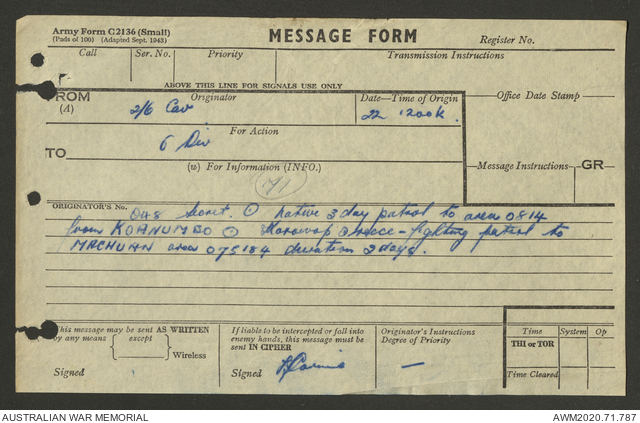 Army Form C2136 (Small)
(Pads of 100) (Adapted Sept. 1943)
MESSAGE FORM
Register No.
Call Ser. No. Priority Transmission Instructions
ABOVE THIS LINE FOR SIGNALS USE ONLY
FROM Originator Date—Time of Origin Office Date Stamp
(A) 2/6 Cav 22 1200K.
For Action
TO 6 Div
(w) For Information (INFO.) Message Instructions GR
71
ORIGINATOR'S No. 048 Secret. native 3 day patrol to area 0814
from KOANUMBO recce-fighting patrol to
area 075184 duration 2 days.
This message may be sent AS WRITTEN
by any means except
Wireless
Signed
If liable to be intercepted or fall into
enemy hands, this message must be
sent IN CIPHER
Signed
Originator's Instructions
Degree of Priority
—
Time System Op
THI or TOR
Time Cleared
AUSTRALIAN WAR MEMORIAL AWM2020.71.787